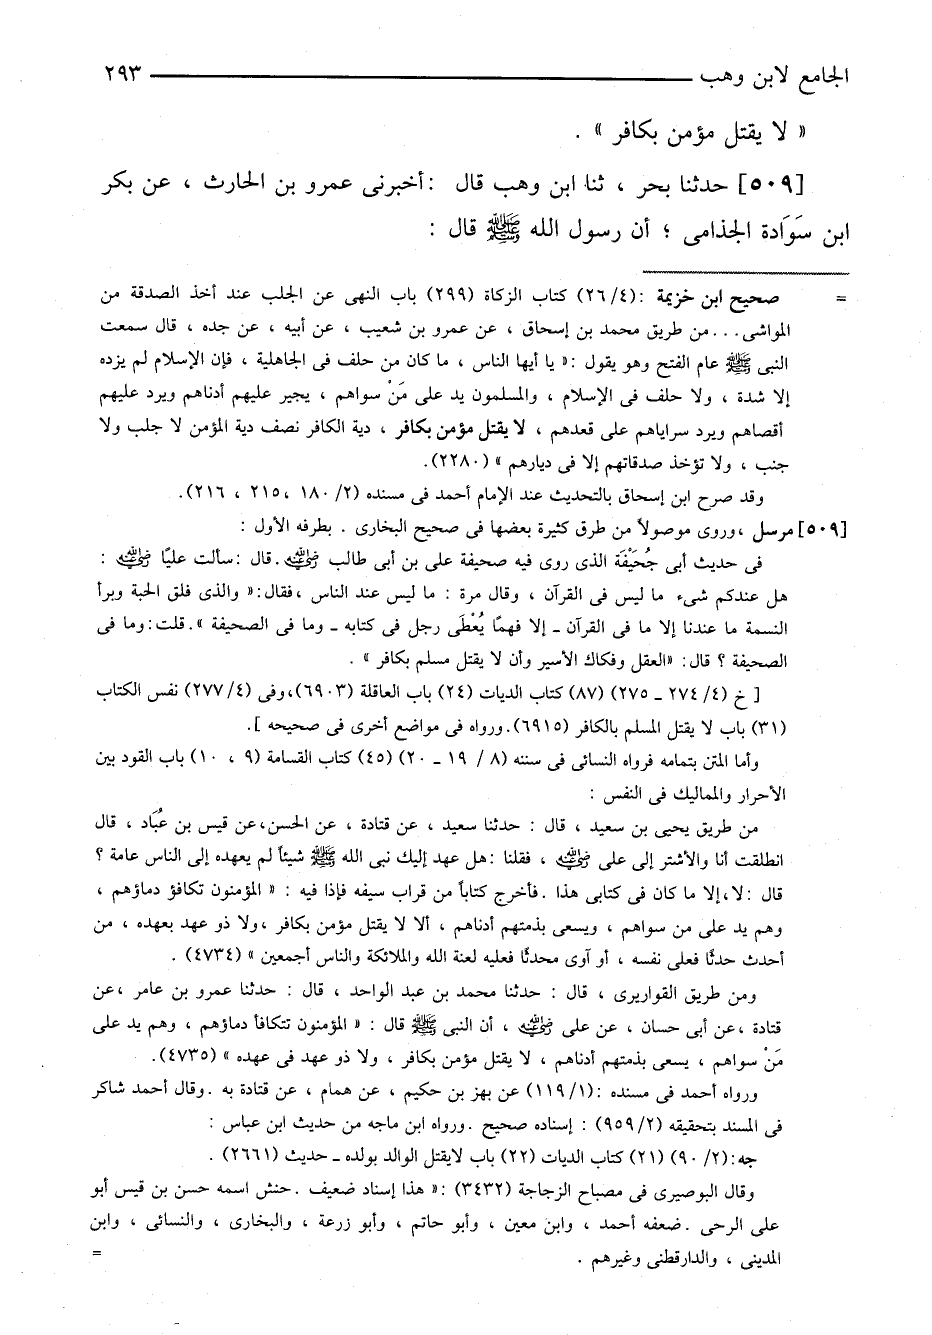 الجامع لابن وهب ــــــــــــــــــــــــ ٢٩٣
« لا يقتل مؤمن بكافر » .
[٥٠٩] حدثنا بحر ، ثنا ابن وهب قال : أخبرنى عمرو بن الحارث ، عن بكر
ابن سَوَادة الجذامى ؛ أن رسول الله ﷺ قال :
= صحيح ابن خزيمة : (٢٦/٤) كتاب الزكاة (٢٩٩) باب النهى عن الجلب عند أخذ الصدقة من
المواشى . . . من طريق محمد بن إسحاق ، عن عمرو بن شعيب ، عن أبيه ، عن جده ، قال سمعت
النبى ﷺ عام الفتح وهو يقول : « يا أيها الناس ، ما كان من حلف فى الجاهلية ، فإن الإسلام لم يزده
إلا شدة ، ولا حلف فى الإسلام ، والمسلمون يد على مَنْ سواهم ، يجير عليهم أدناهم ويرد عليهم
أقصاهم ويرد سراياهم على قعدهم ، لا يقتل مؤمن بكافر ، دية الكافر نصف دية المؤمن لا جلب ولا
جنب ، ولا تؤخذ صدقاتهم إلا فى ديارهم » (٢٢٨٠).
وقد صرح ابن إسحاق بالتحديث عند الإمام أحمد فى مسنده (٢/ ١٨٠ ،٢١٥ ، ٢١٦).
[٥٠٩] مرسل ، وروى موصولاً من طرق كثيرة بعضها فى صحيح البخارى . بطرفه الأول :
فى حديث أبى جُحَيْفَة الذى روى فيه صحيفة على بن أبى طالب رضي الله عنه . قال : سألت عليًا رضي الله عنه :
هل عندكم شىء ما ليس فى القرآن ، وقال مرة : ما ليس عند الناس ، فقال : « والذى فلق الحبة وبرأ
النسمة ما عندنا إلا ما فى القرآن ـ إلا فهمًا يُعْطَى رجل فى كتابه ـ وما فى الصحيفة » . قلت : وما فى
الصحيفة ؟ قال : «العقل وفكاك الأسير وأن لا يقتل مسلم بكافر » .
[ خ (٤/ ٢٧٤ ـ ٢٧٥) (٨٧) كتاب الديات (٢٤) باب العاقلة (٦٩٠٣)، وفى (٢٧٧/٤) نفس الكتاب
(٣١) باب لا يقتل المسلم بالكافر (٦٩١٥). ورواه فى مواضع أخرى فى صحيحه ].
وأما المتن بتمامه فرواه النسائى فى سننه (٨ / ١٩ ـ ٢٠) (٤٥) كتاب القسامة (٩ ، ١٠) باب القود بين
الأحرار والمماليك فى النفس :
من طريق يحيى بن سعيد ، قال : حدثنا سعيد ، عن قتادة ، عن الحسن ، عن قيس بن عُبَاد ، قال
انطلقت أنا والأشتر إلى على رضي الله عنه ، فقلنا : هل عهد إليك نبى الله ﷺ شيئاً لم يعهده إلى الناس عامة ؟
قال : لا ، إلا ما كان فى كتابى هذا . فأخرج كتاباً من قراب سيفه فإذا فيه : « المؤمنون تكافؤ دماؤهم ،
وهم يد على من سواهم ، ويسعى بذمتهم أدناهم ، ألا لا يقتل مؤمن بكافر ، ولا ذو عهد بعهده ، من
أحدث حدثًا فعلى نفسه ، أو آوى محدثًا فعليه لعنة الله والملائكة والناس أجمعين » (٤٧٣٤) .
ومن طريق القواريرى ، قال : حدثنا محمد بن عبد الواحد ، قال : حدثنا عمرو بن عامر ، عن
قتادة ، عن أبى حسان ، عن على رضي الله عنه ، أن النبى ﷺ قال : « المؤمنون تتكافأ دماؤهم ، وهم يد على
مَنْ سواهم ، يسعى بذمتهم أدناهم ، لا يقتل مؤمن بكافر ، ولا ذو عهد فى عهده » (٤٧٣٥).
ورواه أحمد فى مسنده : (١١٩/١) عن بهز بن حكيم ، عن همام ، عن قتادة به . وقال أحمد شاكر
فى المسند بتحقيقه (٩٥٩/٢) : إسناده صحيح . ورواه ابن ماجه من حديث ابن عباس :
جه : (٢/ ٩٠) (٢١) كتاب الديات (٢٢) باب لايقتل الوالد بولده ـ حديث (٢٦٦١) .
وقال البوصيرى فى مصباح الزجاجة (٣٤٣٢) : « هذا إسناد ضعيف . حنش اسمه حسن بن قيس أبو
على الرحى . ضعفه أحمد ، وابن معين ، وأبو حاتم ، وأبو زرعة ، والبخارى ، والنسائى ، وابن
المدينى ، والدارقطنى وغيرهم . =